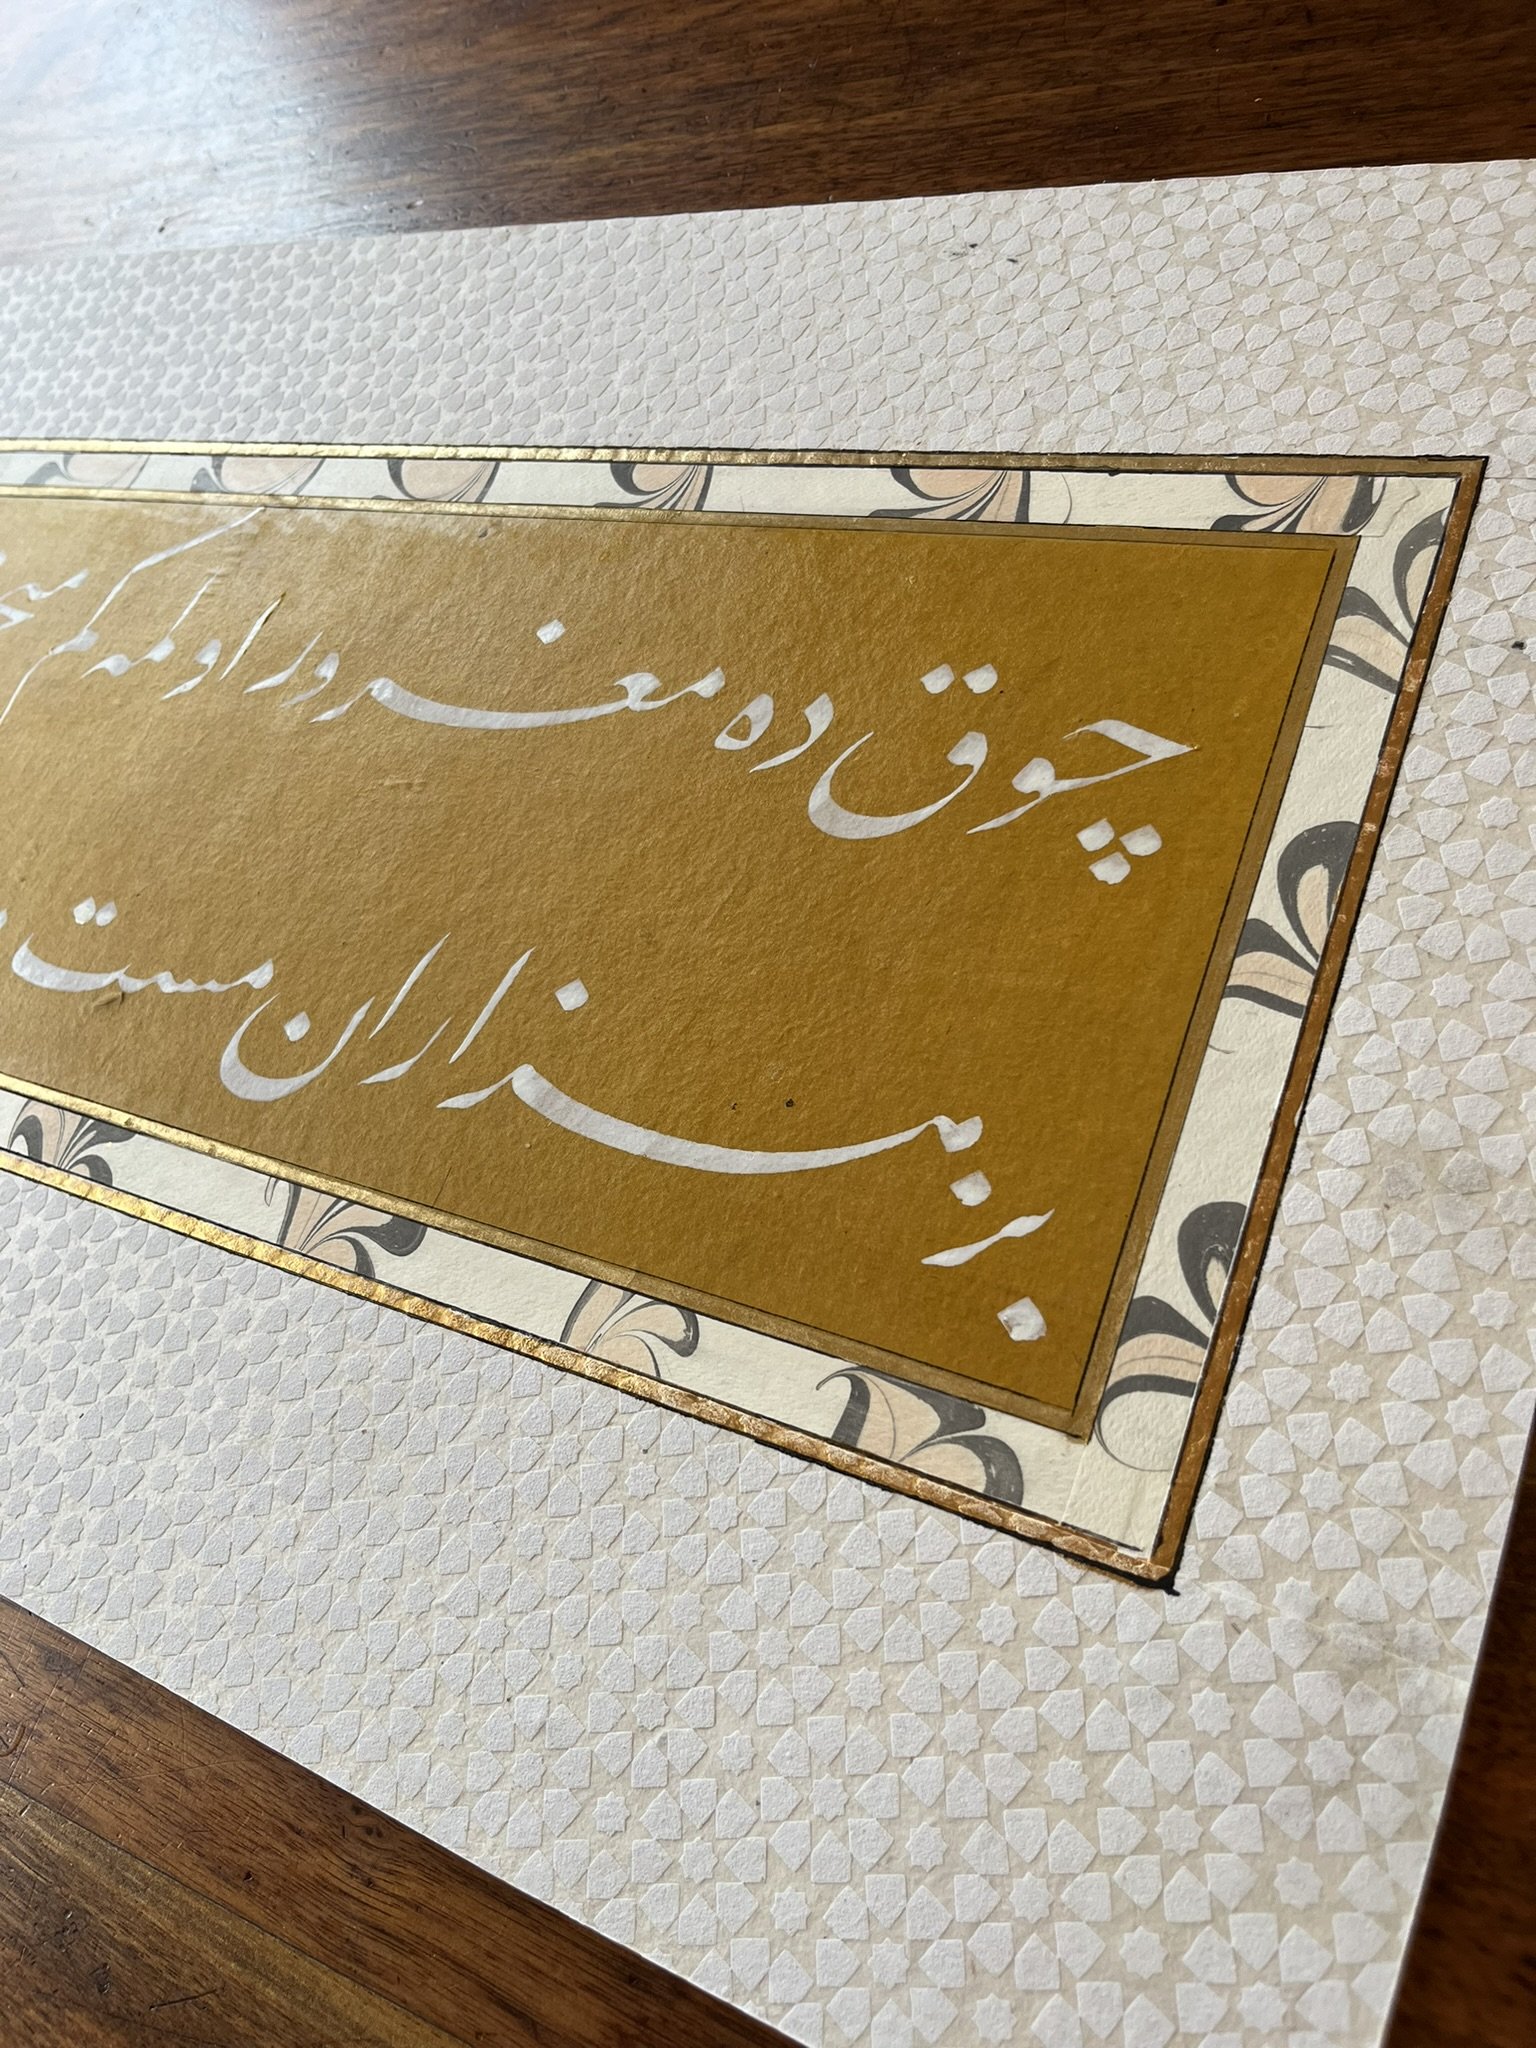 چوق ده مغرور اولمه کم
بز هزاران مست